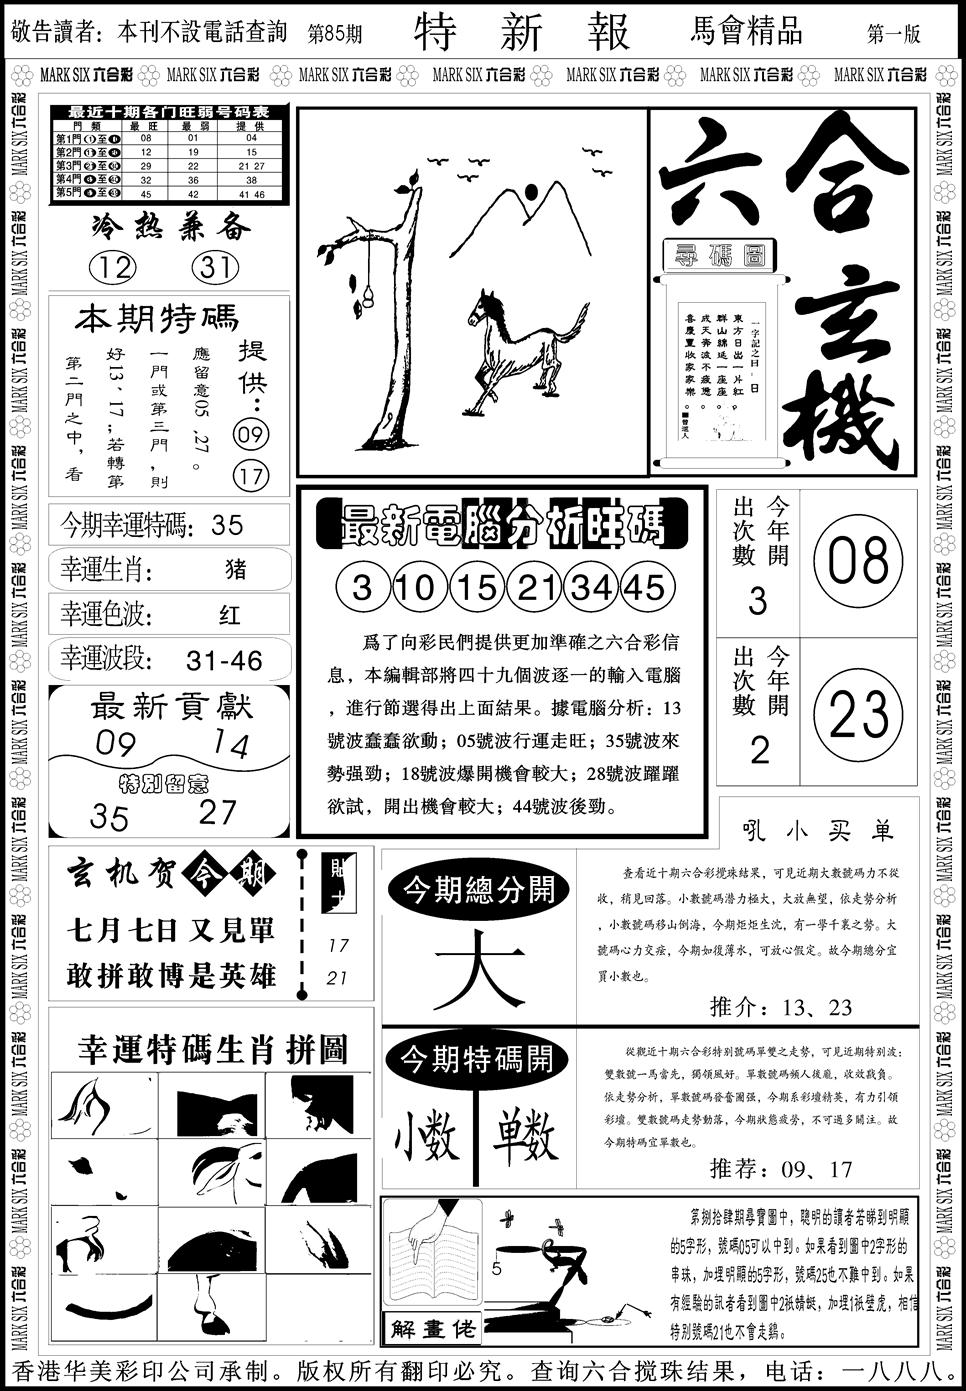 敬告讀者：本刊不設電話查詢 第85期 特新報 馬會精品 第一版
MARK SIX 六合彩 MARK SIX 六合彩 MARK SIX 六合彩 MARK SIX 六合彩 MARK SIX 六合彩 MARK SIX 六合彩 MARK SIX 六合彩
最近十期各门旺弱号码表
門類 最旺 最弱 提供
第1門 至 08 01 04
第2門 至 12 19 15
第3門 至 29 22 21 27
第4門 至 32 36 38
第5門 至 45 42 41 46
冷热兼备
12 31
本期特碼
提供：
09
17
應留意05、27。
一門或第三門，則
好13、17；若轉第
第二門之中，看
今期幸運特碼：35
幸運生肖：猪
幸運色波：红
幸運波段：31-46
最新貢獻
09 14
特別留意
35 27
六合玄機
尋碼圖
一字記之曰：日
東方日出一片紅，
群山綿延一座座。
戍天奔波不疲憊，
喜慶豐收家家樂。
曾道人
最新電腦分析旺碼
3 10 15 21 34 45
爲了向彩民們提供更加準確之六合彩信
息，本編輯部將四十九個波逐一的輸入電腦
，進行節選得出上面結果。據電腦分析：13
號波蠢蠢欲動；05號波行運走旺；35號波來
勢强勁；18號波爆開機會較大；28號波躍躍
欲試，開出機會較大；44號波後勁。
今年開出次數
3
08
今年開出次數
2
23
玄机贺今期
七月七日又見單
敢拼敢博是英雄
貼士
17
21
吼小买单
今期總分開
大
查看近十期六合彩攪珠結果，可見近期大數號码力不從
收，稍見回落。小數號码潛力極大，大放無望，依走勢分析
，小數號码移山倒海，今期炬炬生沈，有一學千裏之勢。大
號码心力交瘁，今期如復薄水，可放心假定。故今期總分宜
買小數也。
推介：13、23
今期特碼開
小数 单数
從觀近十期六合彩特別號码單雙之走勢，可見近期特別波：
雙數號一馬當先，獨領風好。單數號码頻人後龐，收效戩負。
依走勢分析，單數號码發奮圖强，今期系彩壇精英，有力引領
彩壇。雙數號码走勢動落，今期狀態疲勞，不可過多關注。故
今期特码宜單數也。
推荐：09、17
幸運特碼生肖拼圖
解畫佬
5
第捌拾肆期尋寶圖中，聰明的讀者若睇到明顯
的5字形，號碼05可以中到。如果看到圖中2字形的
串珠，加埋明顯的5字形，號碼25也不難中到。如果
有經驗的訊者看到圖中2衹蜻蜓，加埋1衹壁虎，相信
特別號碼21也不會走鷄。
香港华美彩印公司承制。版权所有翻印必究。查询六合搅珠结果，电话：一八八八。